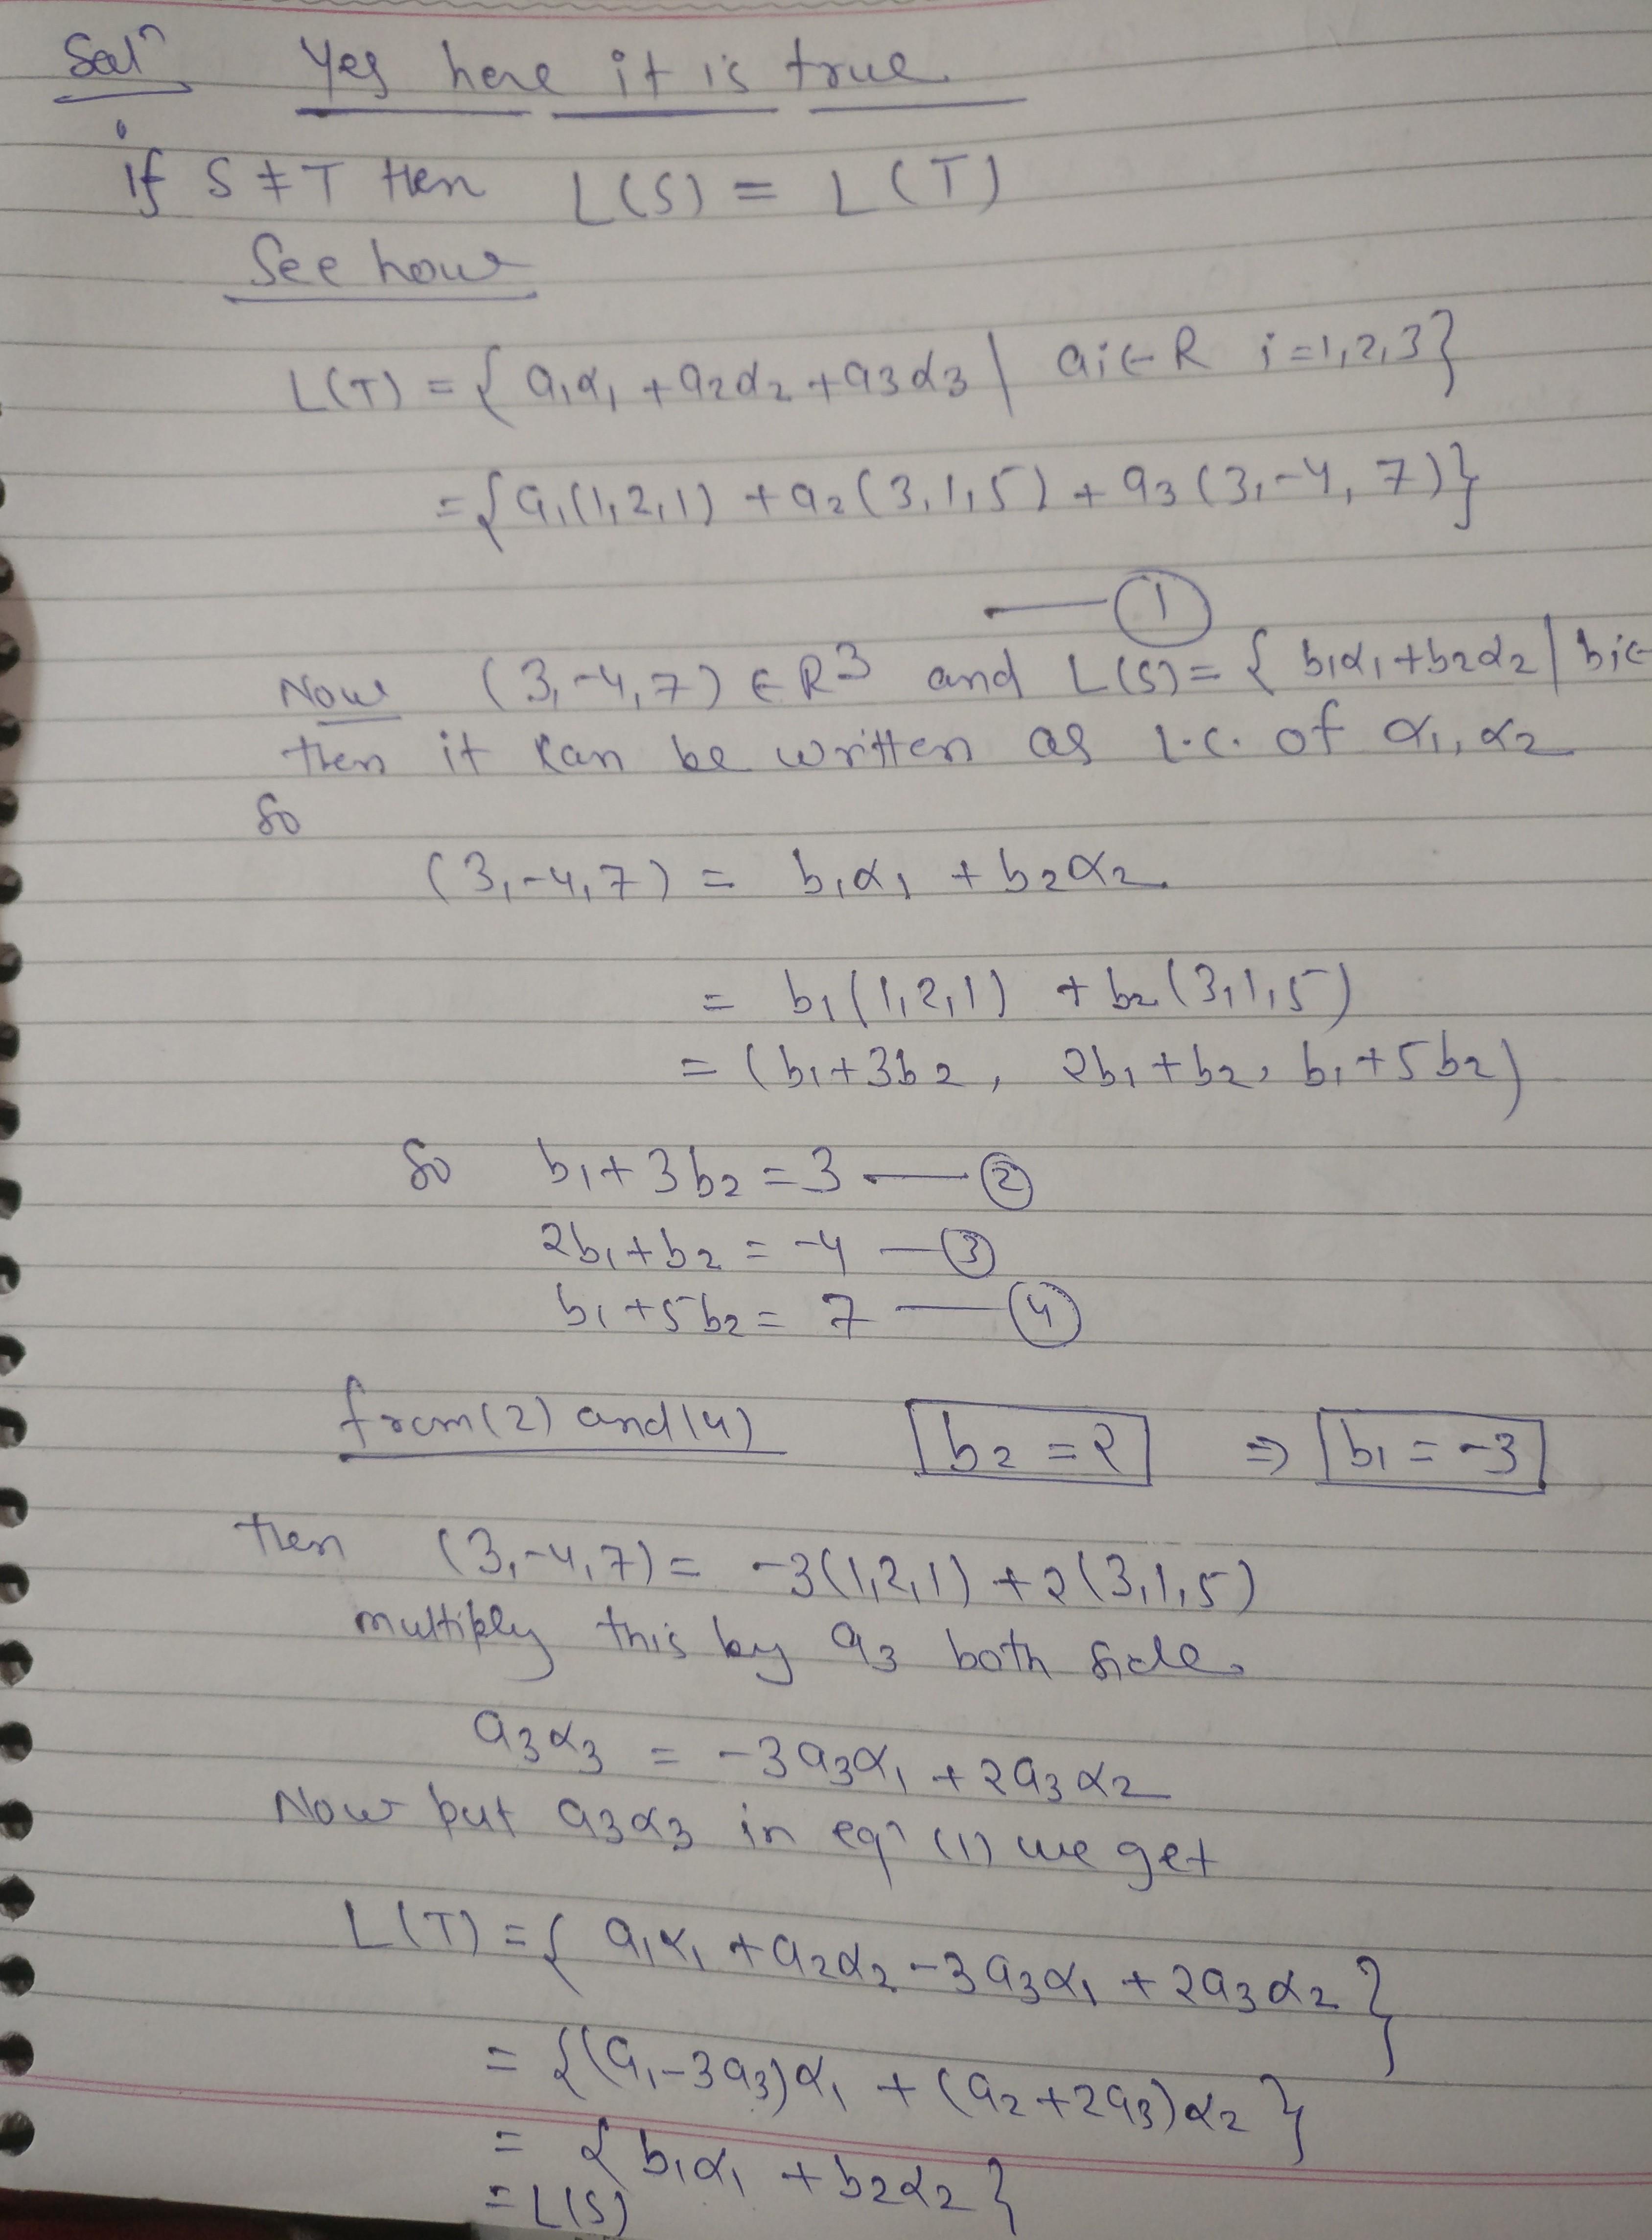 Solⁿ Yes here it is true
if S ≠ T then L(S) = L(T)
See how
L(T) = { a₁α₁ + a₂α₂ + a₃α₃ | ai ∈ R i = 1,2,3}
= { a₁(1,2,1) + a₂(3,1,5) + a₃(3,-4,7)}
— ①
Now (3,-4,7) ∈ R³ and L(S) = { b₁α₁ + b₂α₂ | bi ∈
then it can be written as l.c. of α₁, α₂
So
(3,-4,7) = b₁α₁ + b₂α₂
= b₁(1,2,1) + b₂(3,1,5)
= (b₁+3b₂, 2b₁+b₂, b₁+5b₂)
So b₁+3b₂ = 3 — ②
2b₁+b₂ = -4 — ③
b₁+5b₂ = 7 — ④
from (2) and (4) b₂ = 2 ⇒ b₁ = -3
then (3,-4,7) = -3(1,2,1) + 2(3,1,5)
multiply this by a₃ both side
a₃α₃ = -3a₃α₁ + 2a₃α₂
Now put a₃α₃ in eqⁿ (1) we get
L(T) = { a₁α₁ + a₂α₂ - 3a₃α₁ + 2a₃α₂ }
= {(a₁-3a₃)α₁ + (a₂+2a₃)α₂ }
= { b₁α₁ + b₂α₂ }
= L(S)